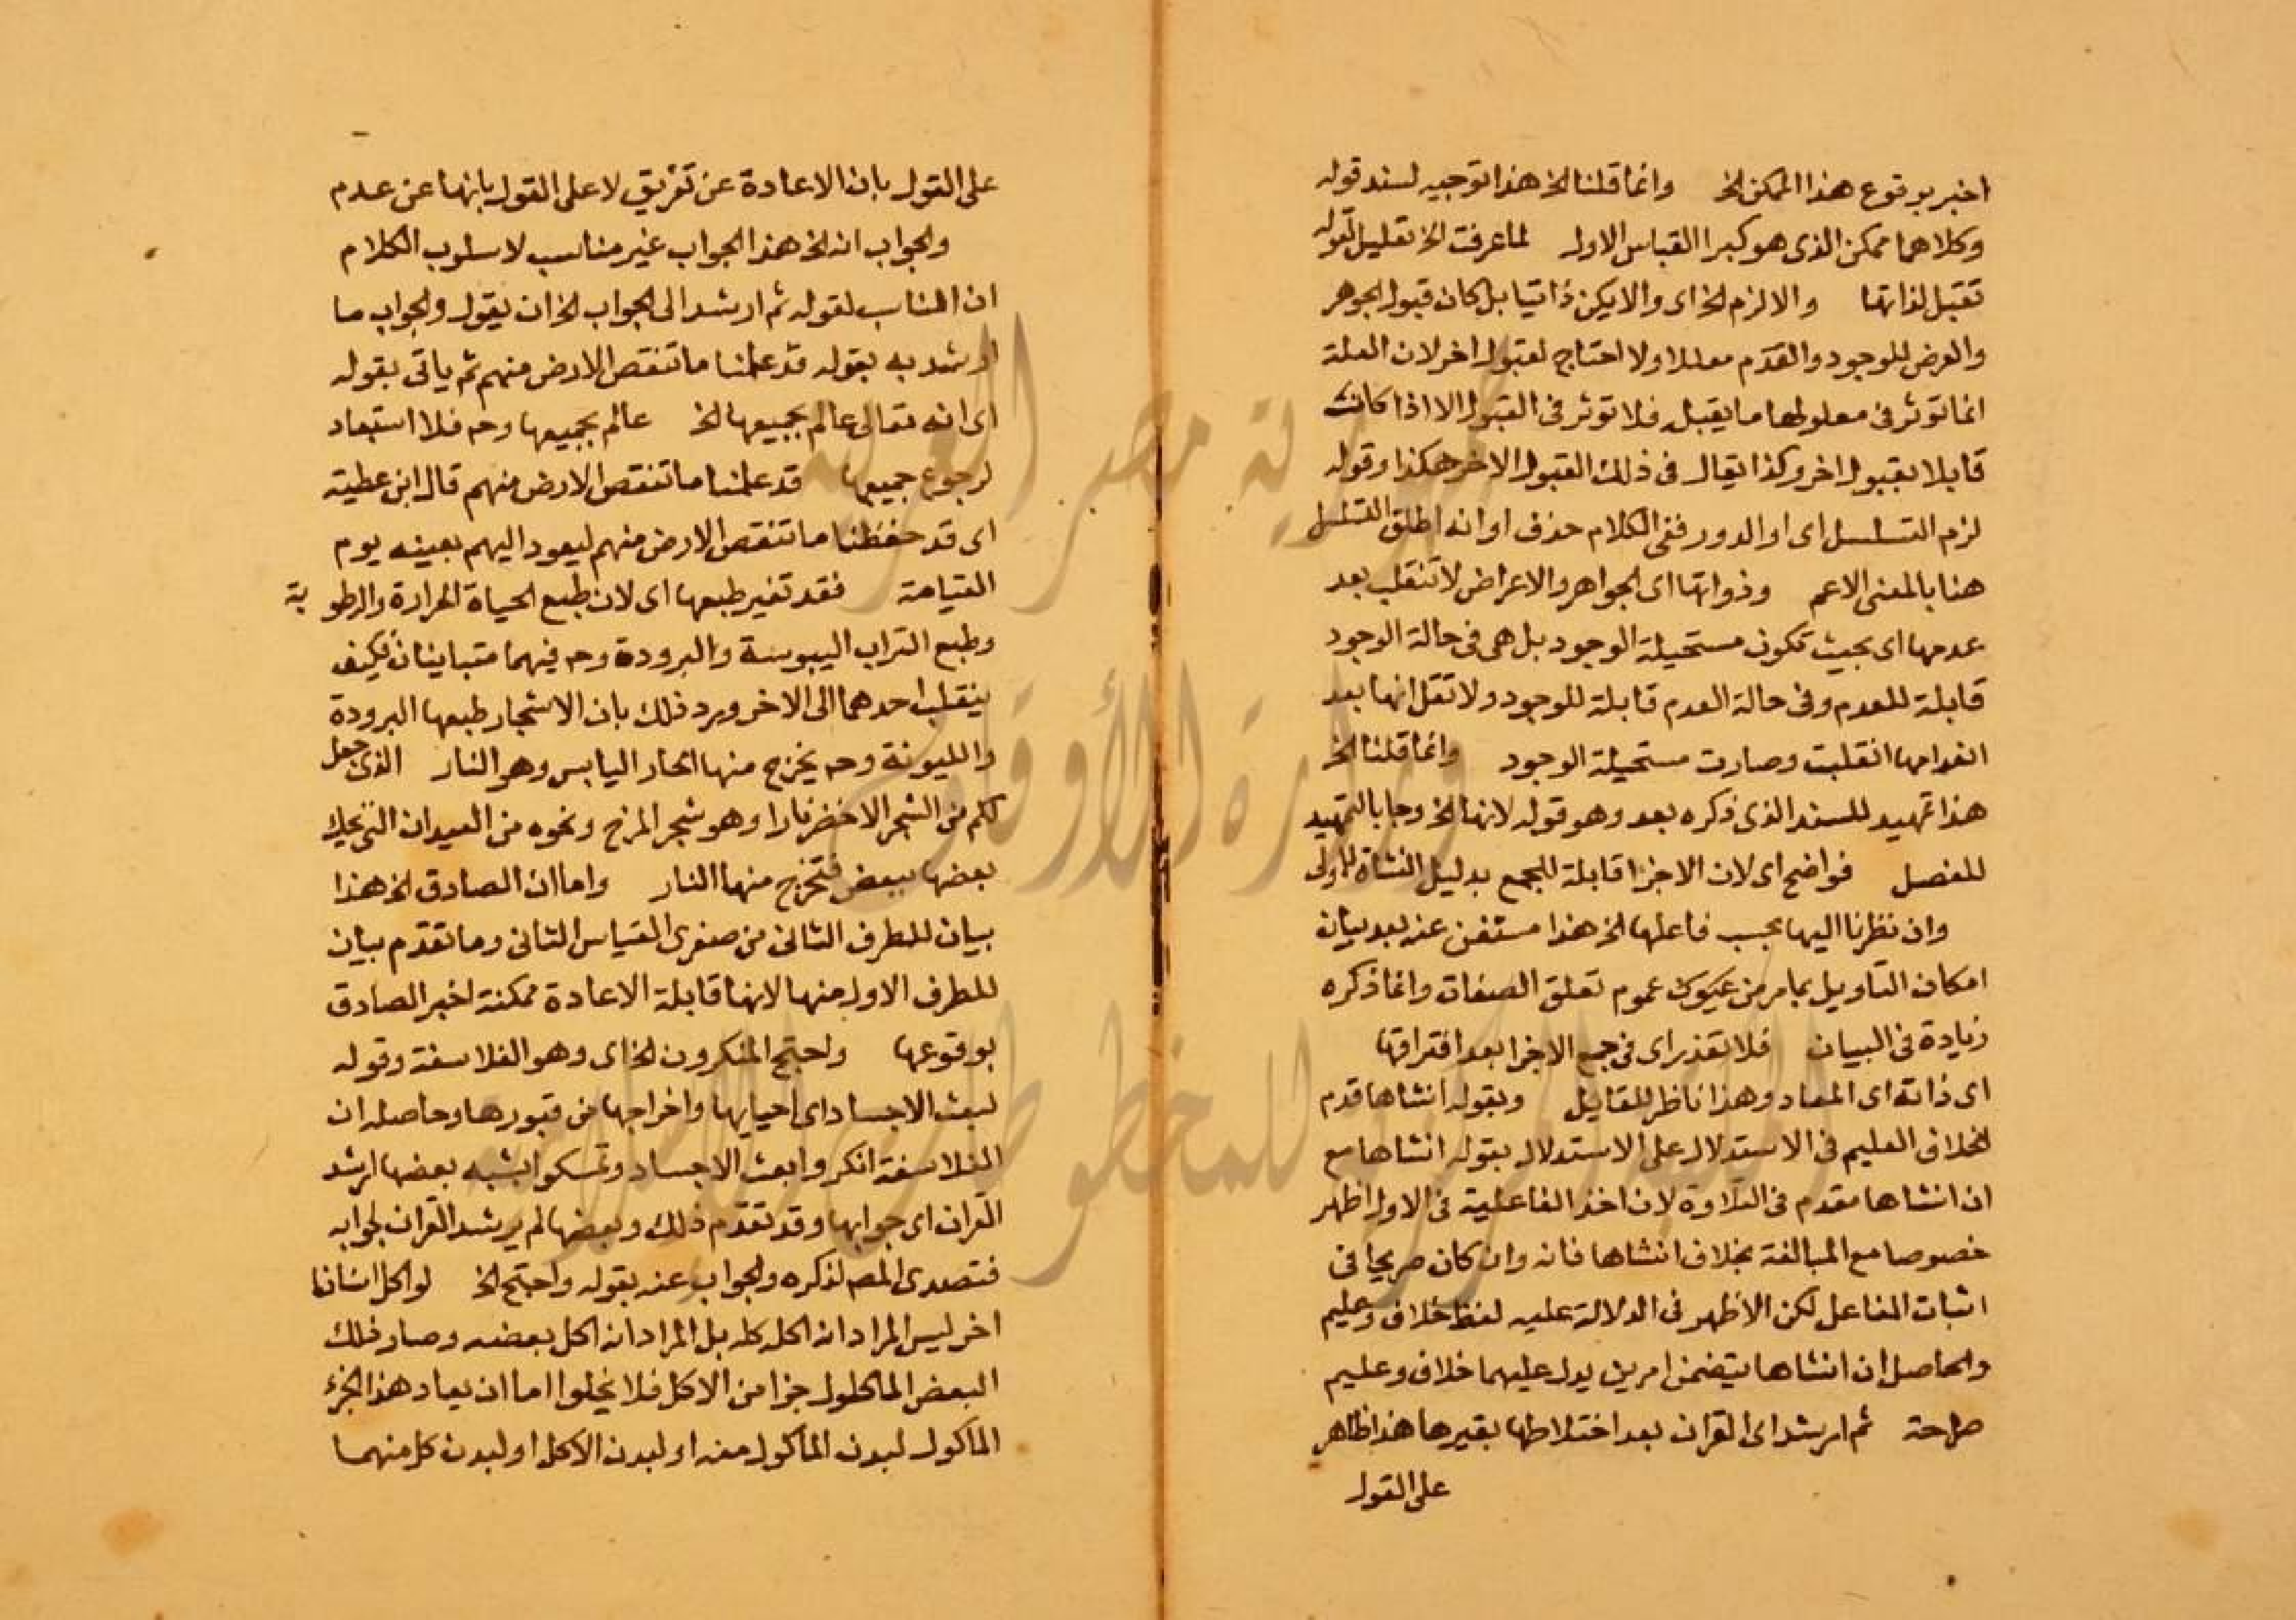 اخبر بوقوع هذا الممكن الخ وانما قلنا الخ هذا توجيه لسند قوله
وكلاهما ممكن الذى هو كبرا القياس الاول لما عرفت الخ تعليل لقوله
تقبل لذاتها والا لزم الخ اى والا يكن ذاتيا بل كان قبول الجوهر
والعرض للوجود والعدم معللا ولا احتاج لقبول اخر لان العلة
انما توثر فى معلولها ما يقبل فلا توثر فى القبول الا اذا كانت
قابلا بقبول اخر وكذا يقال فى ذلك القبول الاخر هكذا وقوله
لزم التسلسل اى او الدور ففى الكلام حذف او انه اطلق التسلسل
هنا بالمعنى الاعم وذواتها اى الجواهر والاعراض لا تنقلب بعد
عدمها اى بحيث تكون مستحيلة الوجود بل هى فى حالة الوجود
قابلة للعدم وفى حالة العدم قابلة للوجود ولا تقل انها بعد
انعدامها انقلبت وصارت مستحيلة الوجود وانما قلنا الخ
هذا تمهيد للسند الذى ذكره بعد وهو قوله لانها الخ وجا بالتمهيد
للفصل فواضح اى لان الاجزا قابلة للجمع بدليل النشاة الاولى
وان نظرنا اليها بحسب فاعلها الخ هذا مستغن عنه بعد بيان
امكان التاويل بما مر من عموم تعلق الصفات وانما ذكره
زيادة فى البيان فلا تعذر اى فى جمع الاجزا بعد افتراقها
اى ذاته اى المعاد وهذا ناظر للقابل وبقوله انشاها قدم
الخلاق العليم فى الاستدلال على الاستدلال بقوله انشاها مع
ان انشاها مقدم فى التلاوة لان اخذ الفاعلية فى الاول اظهر
خصوصا مع المبالغة بخلاف انشاها فانه وان كان صريحا فى
اثبات الفاعل لكن الاظهر فى الدلالة عليه لفظ خلاق وعليم
والحاصل ان انشاها يتضمن امرين يدل عليهما خلاق وعليم
صراحة ثم ارشد اى القران بعد اختلاطها بغيرها هذا ظاهر
على القول
على القول بان الاعادة عن تفريق لا على القول بانها عن عدم
والجواب انه الخ هذا الجواب غير مناسب لاسلوب الكلام
ان المناسب لقوله ثم ارشد الى الجواب الخ ان يقول والجواب ما
ارشد به بقوله قد علمنا ما تنقص الارض منهم ثم ياتى بقوله
اى انه تعالى عالم بجميعها الخ عالم بجميعها وح فلا استبعاد
لرجوع جميعها قد علمنا ما تنقص الارض منهم قال ابن عطية
اى قد حفظنا ما تنقص الارض منهم ليعود اليهم بعينه يوم
القيامة فقد تغير طبعها اى لان طبع الحياة الحرارة والرطوبة
وطبع التراب اليبوسة والبرودة وح فيهما متباينان فكيف
ينقلب احدهما الى الاخر ورد ذلك بان الاشجار طبعها البرودة
والليونة وح يخرج منها الحار اليابس وهو النار الذى جعل
لكم من الشجر الاخضر نارا وهو شجر المرخ ونحوه من العيدان التى يحك
بعضها ببعض فتخرج منها النار واما ان الصادق الخ هذا
بيان للطرف الثانى من صغرى القياس الثانى وما تقدم بيان
للطرف الاول منها لانها قابلة الاعادة ممكنة اخبر الصادق
بوقوعها واحتج المنكرون الخ اى وهو الفلاسفة وقوله
لبعث الاجساد اى احيايها واخراجها من قبورها وحاصله ان
الفلاسفة انكروا بعث الاجساد وتمسكوا بشبه بعضها ارشد
القران اى جوابها وقد تقدم ذلك وبعضها لم يرشد القران لجوابه
فتصدى المص لذكره والجواب عنه بقوله واحتج الخ لو اكل انسانا
اخر ليس المراد انه اكله كله بل المراد انه اكل بعضه وصار ذلك
البعض الماكلول جزا من الاكل فلا يخلوا اما ان يعاد هذا الجزء
الماكول لبدن الماكول منه او لبدن الاكل او لبدن كل منهما